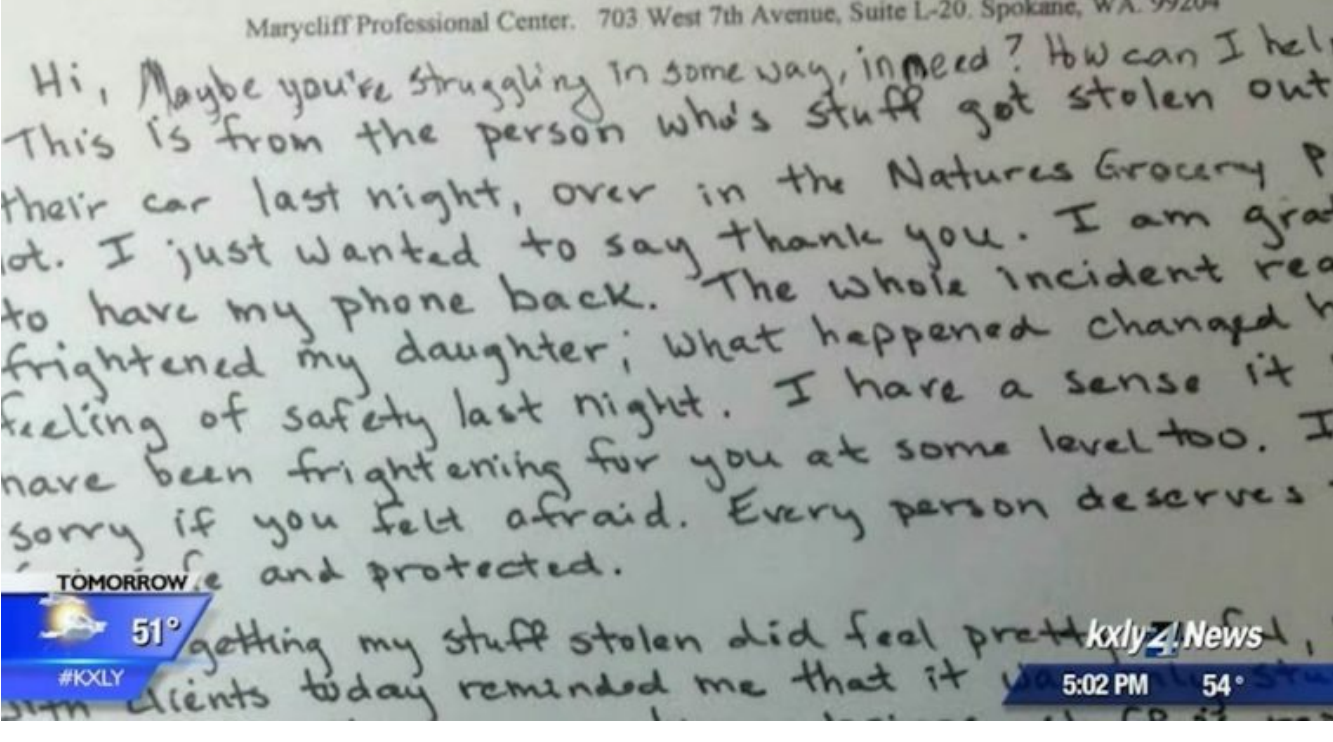 Marycliff Professional Center. 703 West 7th Avenue, Suite L-20. Spokane, WA. 99204
Hi, Maybe you're struggling in some way, in need? How can I hel
This is from the person who's stuff got stolen out
their car last night, over in the Natures Grocery P
ot. I just wanted to say thank you. I am grat
to have my phone back. The whole incident rea
frightened my daughter; what happened changed h
feeling of safety last night. I have a sense it
have been frightening for you at some level too. I
sorry if you felt afraid. Every person deserves
and protected.
getting my stuff stolen did feel
with clients today reminded me that it
TOMORROW
51°
#KXLY
kxly 4 News
5:02 PM 54°